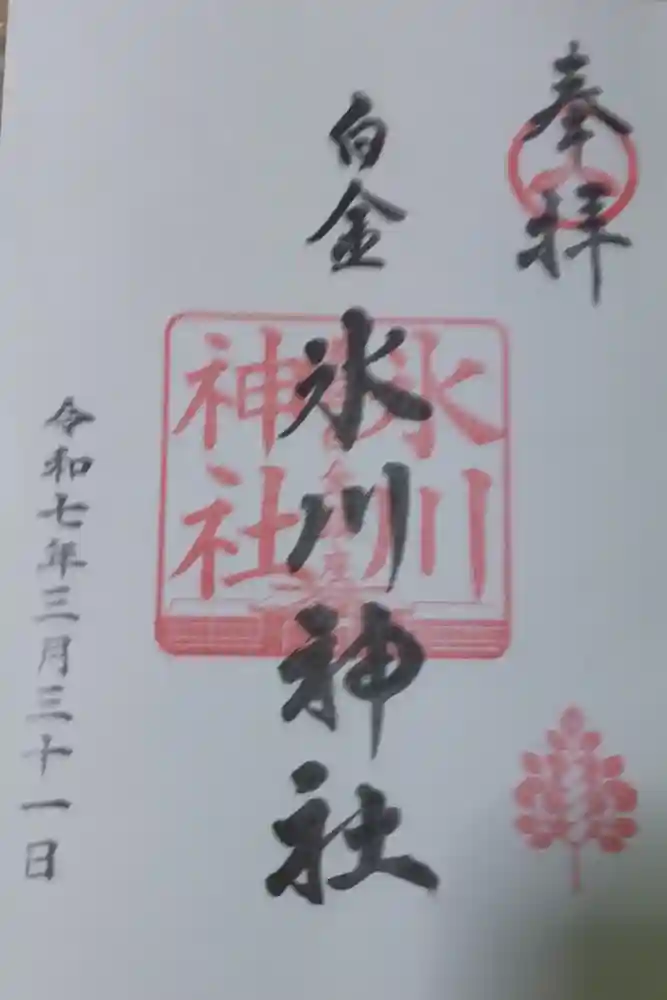 奉拝
白金
氷川神社
氷川
神社
令和七年三月三十一日